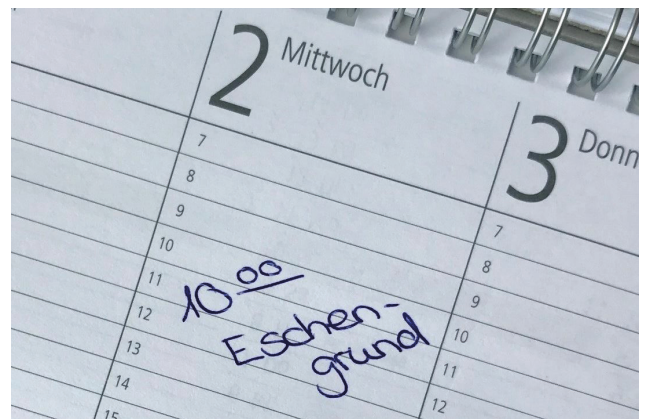 2 Mittwoch
7
8
9
10
11
12
13
14
15
10 00
Eschen-
grund
3 Donn
7
8
9
10
11
12